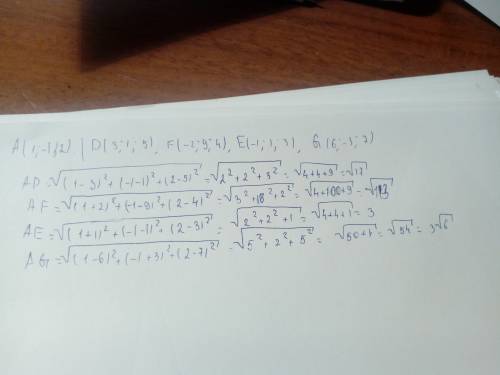 A(1;-1;2) | D(3;1;5), F(-2;9;4), E(-1;1;3), G(6;-3;7)
AD=√(1-3)²+(-1-1)²+(2-5)² = √2²+2²+3² = √4+4+9 = √17
AF=√(1+2)²+(-1-9)²+(2-4)² = √3²+10²+2² = √4+100+9 = √113
AE=√(1+1)²+(-1-1)²+(2-3)² = √2²+2²+1 = √4+4+1 = 3
AG=√(1-6)²+(-1+3)²+(2-7)² = √5²+2²+5² = √50+4 = √54 = 3√6